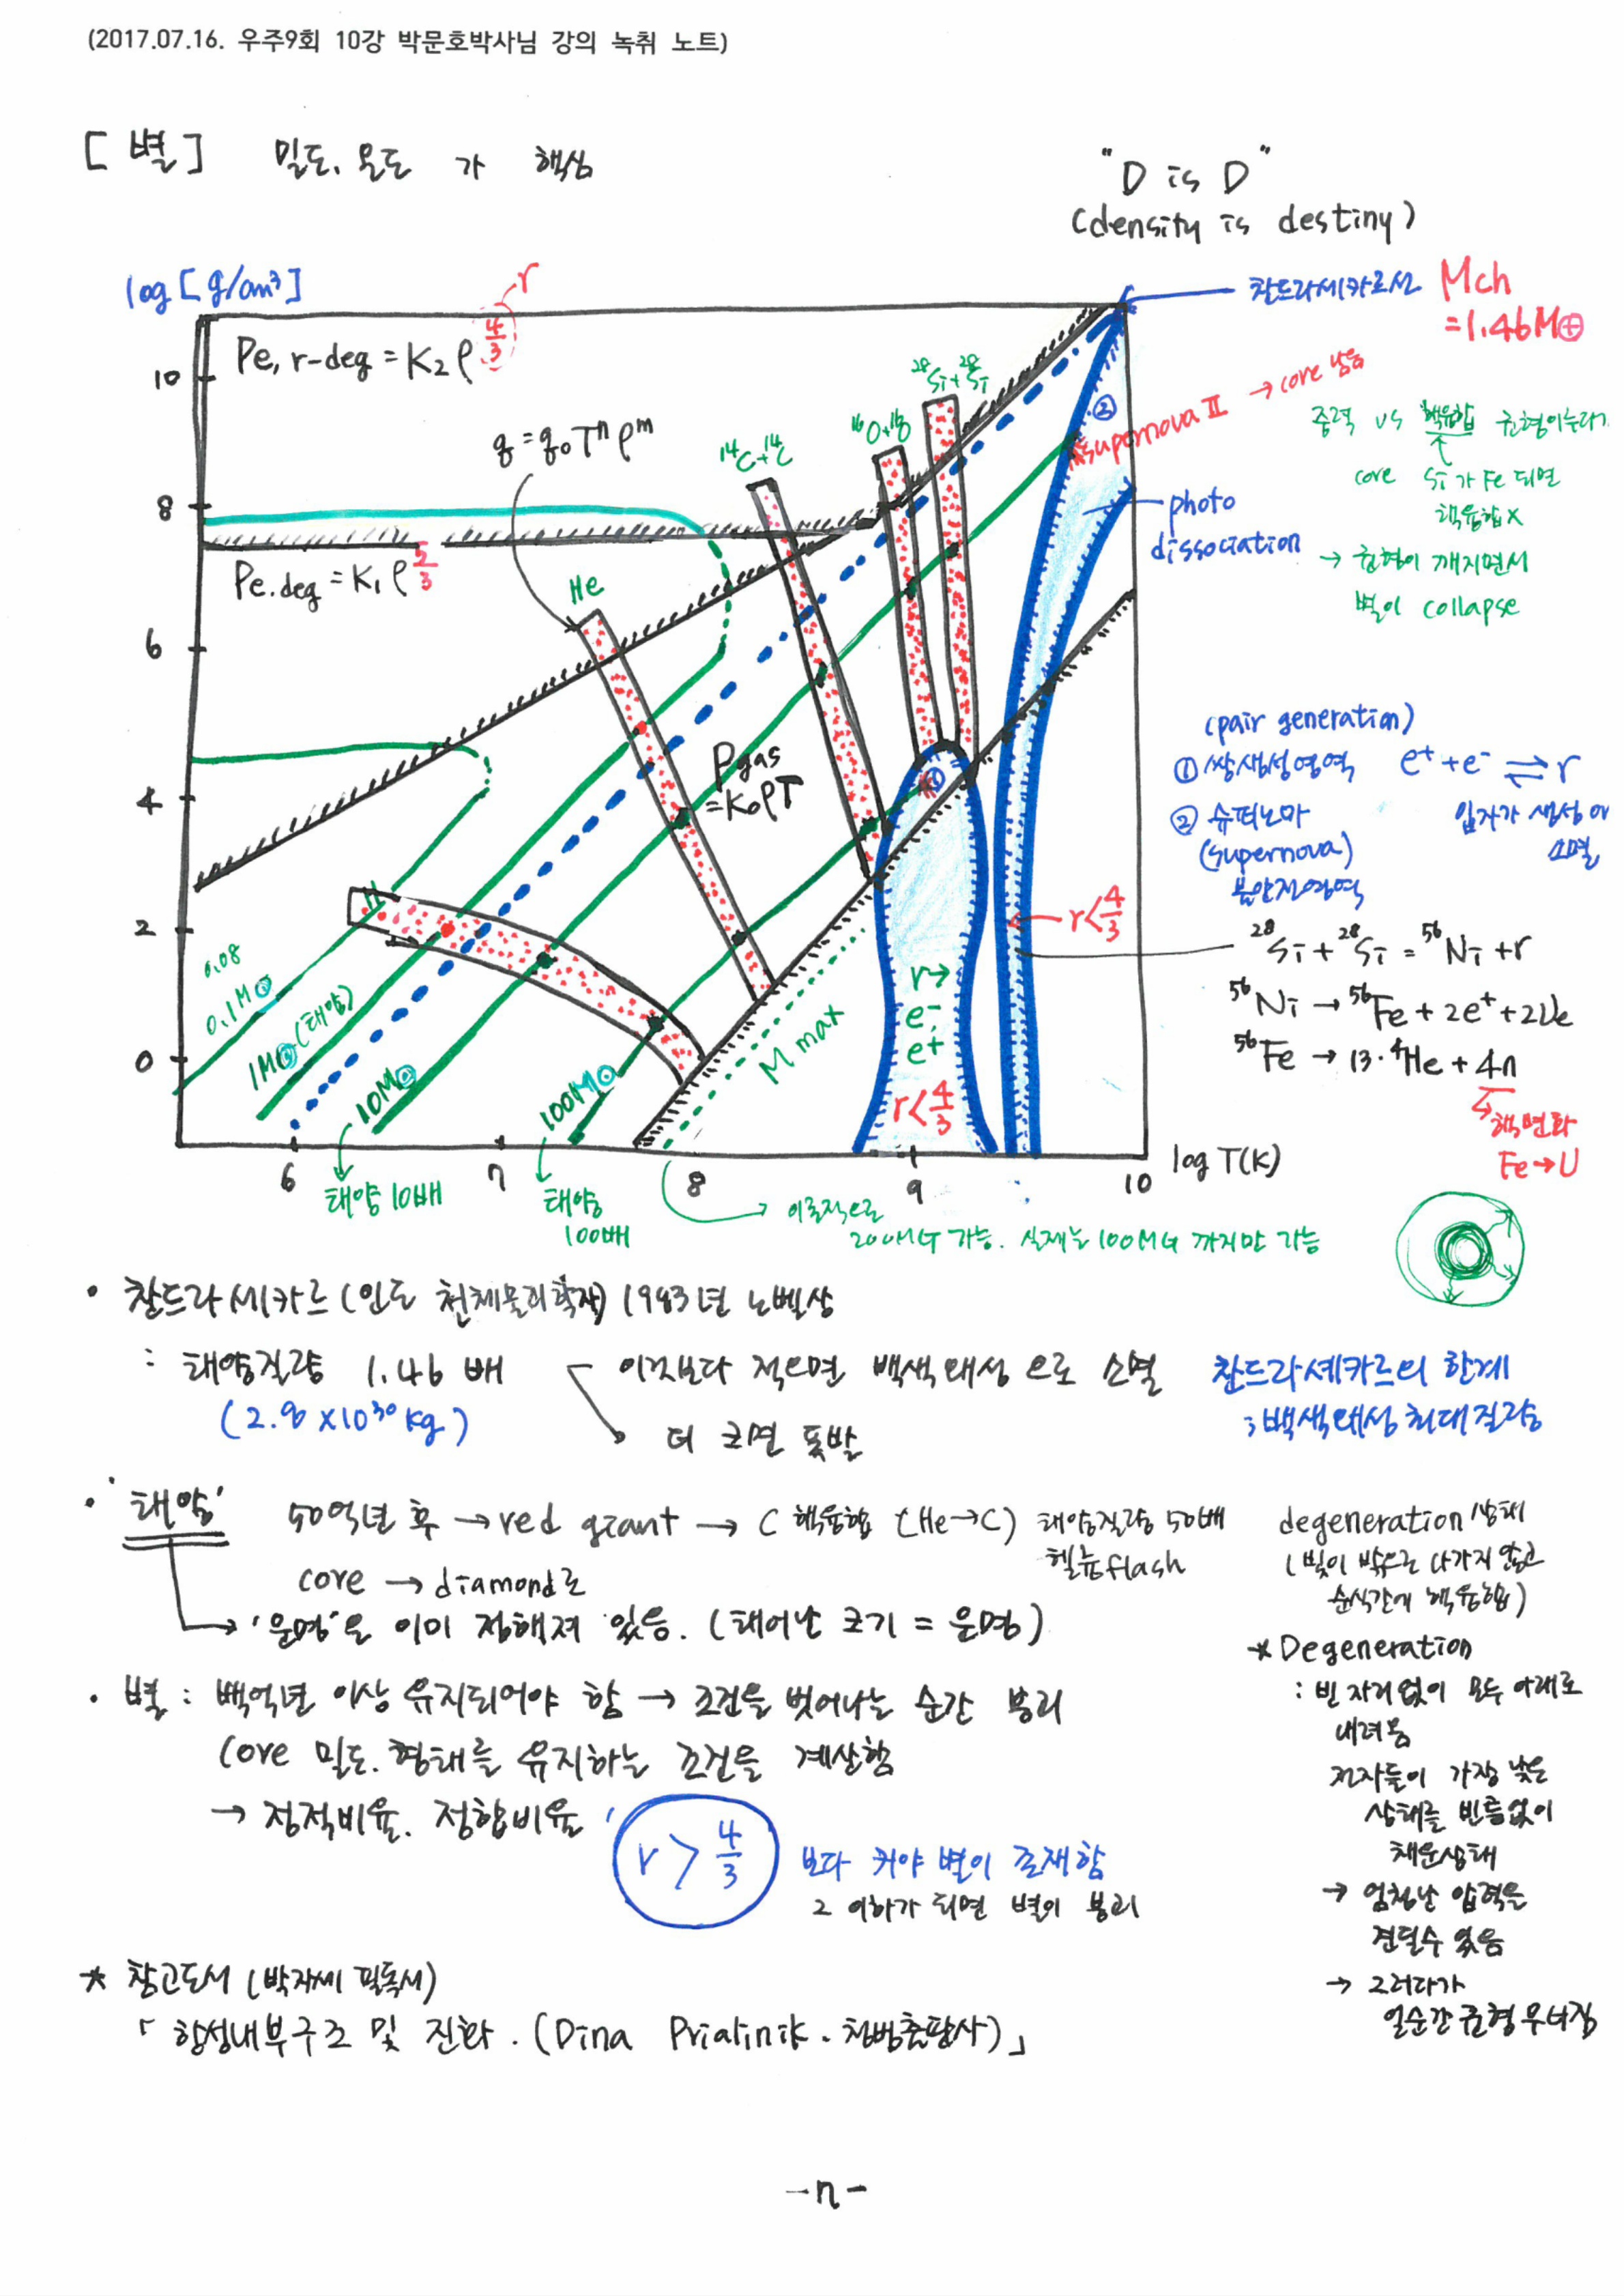 (2017.07.16. 우주9회 10강 박문호박사님 강의 녹취 노트)
[별] 밀도. 온도 가 핵심
"D is D"
(density is destiny)
log [g/cm³]
찬드라세카르선 Mch
=1.46M⊕
r
Pe, r-deg = K₂ρ^4/3
q = q₀Tⁿρᵐ
Pe.deg = K₁ρ^5/3
He
¹⁴C+¹⁴C
¹⁶O+¹⁶O
²⁸Si+²⁸Si
②
supernova II → core 남음
photo
dissociation
중력 vs 핵융합 균형이루다가
core Si가 Fe 되면
핵융합X
→ 균형이 깨지면서
별이 collapse
10
8
6
4
2
0
Pgas
=K₀ρT
①
H
0.08
0.1M⊙
1M⊙(태양)
10M⊙
100M⊙
M max
r→
e-
e+
r<4/3
r<4/3
(pair generation)
① 쌍생성영역 e⁺+e⁻ ⇌ r
입자가 생성
소멸
② 슈퍼노바
(supernova)
불안전영역
²⁸Si+²⁸Si = ⁵⁶Ni+r
⁵⁶Ni → ⁵⁶Fe+2e⁺+2νe
⁵⁶Fe → 13·⁴He+4n
핵변화
Fe→U
6 7 8 9 10 log T(K)
태양 10배
태양
100배
이론적으로
200M 가능. 실제는 100M 까지만 가능
• 찬드라세카르(인도 천체물리학자) 1983년 노벨상
: 태양질량 1.46배
(2.9×10³⁰kg)
이것보다 적으면 백색왜성으로 소멸
더 크면 폭발
찬드라세카르의 한계
; 백색왜성 최대질량
• '태양' 50억년 후 → red giant → C 핵융합 (He→C) 태양질량 50배
헬륨flash
core → diamond로
→ '운명'은 이미 정해져 있음. (태어난 크기 = 운명)
degeneration상태
(빛이 밖으로 나가지 않고
순식간에 핵융합)
* Degeneration
: 빈 자리없이 모두 아래로
내려옴
전자들이 가장 낮은
상태를 빈틈없이
채운상태
→ 엄청난 압력을
견딜수 있음
→ 그러다가
일순간 균형무너짐
• 별 : 백억년 이상 유지되어야 함 → 조건을 벗어나는 순간 붕괴
core 밀도. 형태를 유지하는 조건을 계산함
→ 정적비율. 정합비율
r > 4/3
보다 커야 별이 존재함
그 이하가 되면 별이 붕괴
* 참고도서 (박자세 필독서)
「항성내부구조 및 진화. (Dina Prialinik. 청범출판사)」
-7-